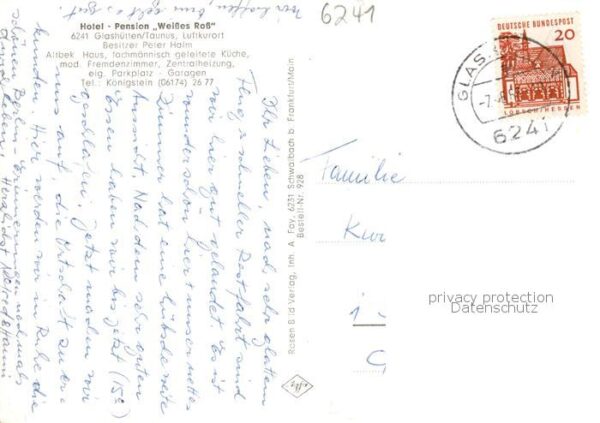 6241
Hotel - Pension „Weißes Roß"
6241 Glashütten/Taunus, Luftkurort
Besitzer Peter Halm
Altbek. Haus, fachmännisch geleitete Küche,
mod. Fremdenzimmer, Zentralheizung,
eig. Parkplatz - Garagen
Tel.: Königstein (06174) 26 77
Ihr Lieben, nach sehr glattem
schneller Restfahrt sind
wir hier gut gelandet. Es ist
wunderschön hier! unser nettes
Zimmer hat eine hübsche weite
Aussicht. Nachdem sehr guten
Essen haben wir bis jetzt (15°)
geschlafen, jetzt machen wir
uns auf, die Ortschaft zu er-
kunden. Hier werden wir in Ruhe die
schönen Berlin-Erinnerungen nochmals
Rosen Bild Verlag, Inh. A. Fay, 6231 Schwalbach b. Frankfurt/Main
Bestell-Nr. 928
DEUTSCHE BUNDESPOST
20
LORSCH/HESSEN
6241
Familie
Kur
1-
G
privacy protection
Datenschutz